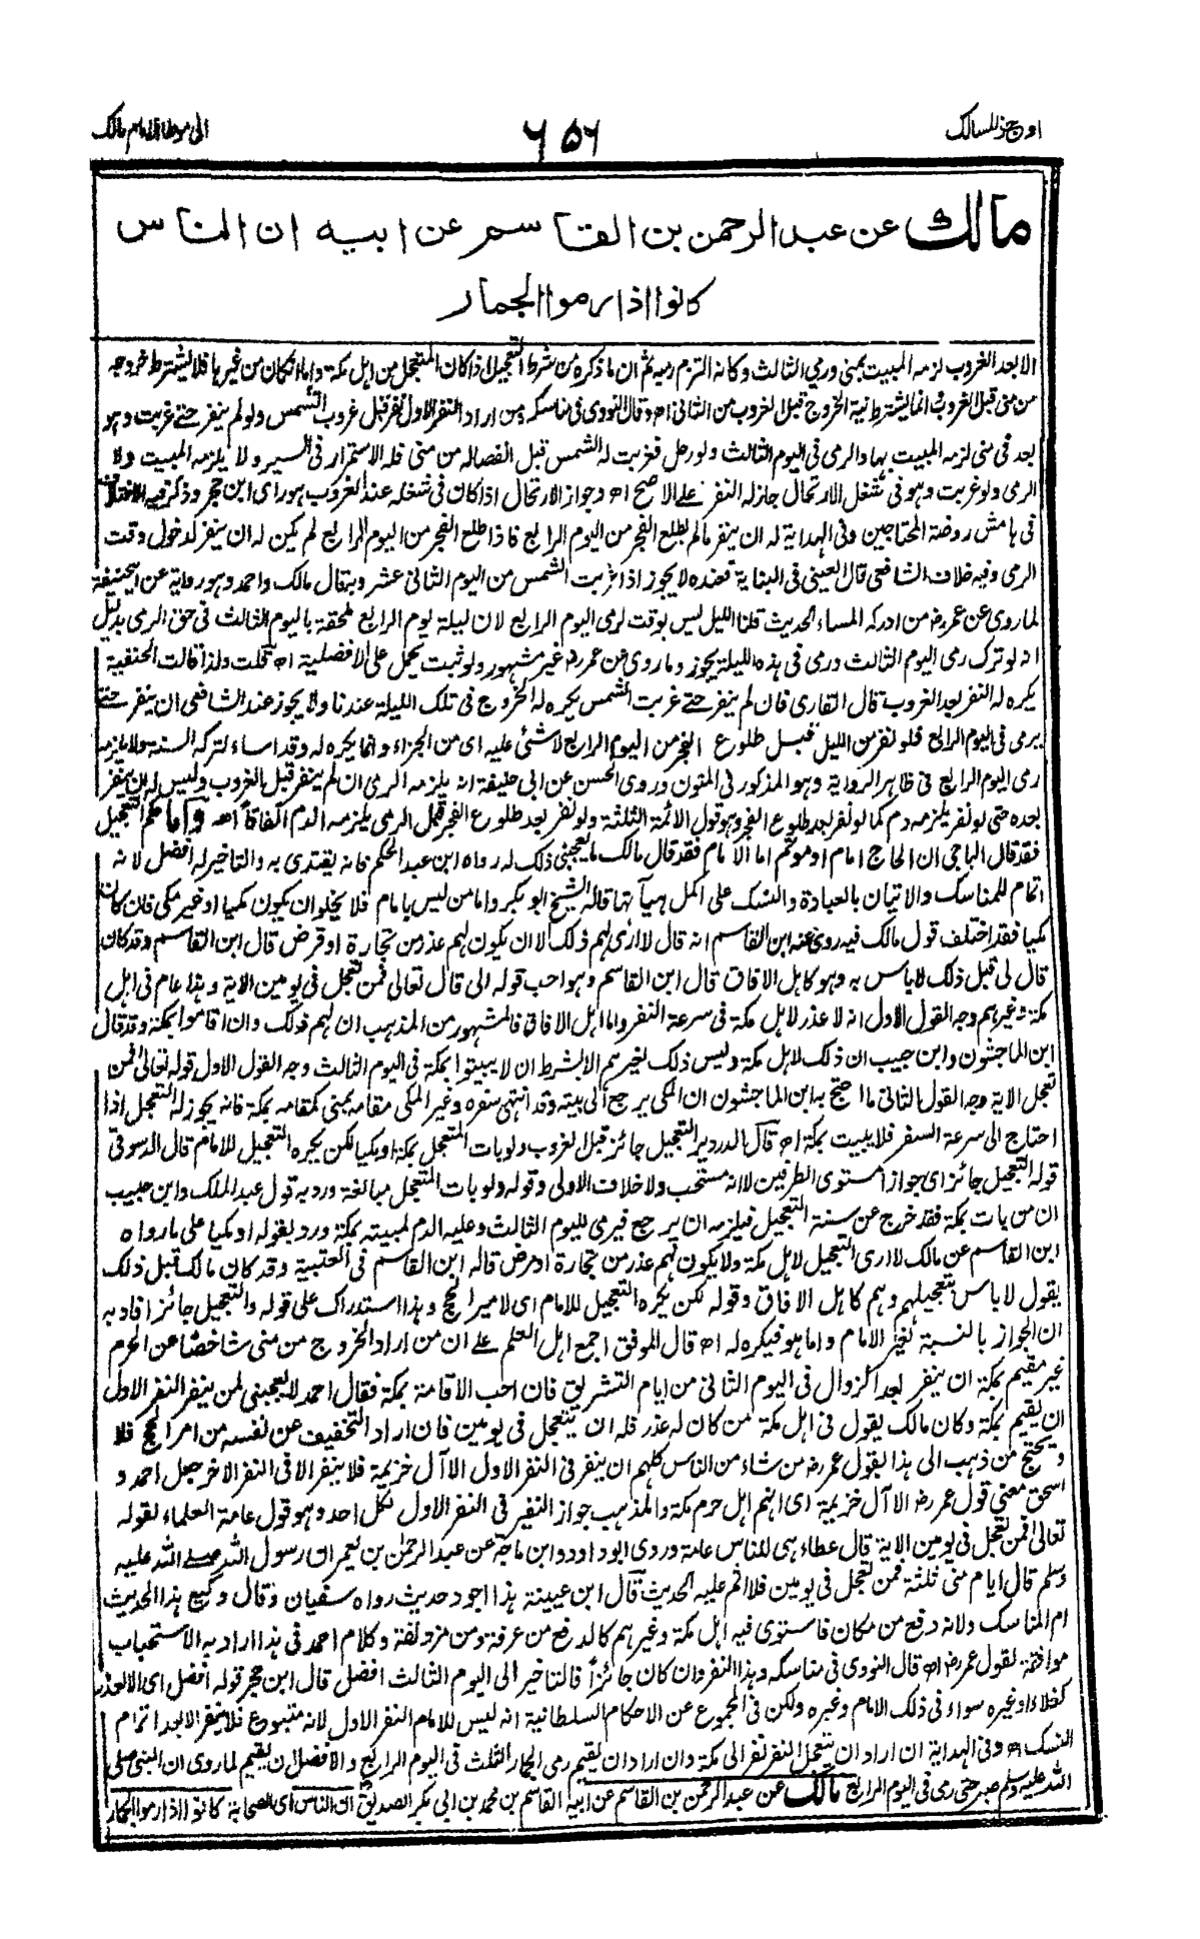 اوجز المسالك
٦٥٦
الى موطا الامام مالك
مالك عن عبد الرحمن بن القاسم عن ابيه ان الناس
كانوا اذا رموا الجمار
الا بعد الغروب لزمه المبيت بمنى ورمي الثالث وكانه التزم رميه ثم ان ما ذكره من شرط التعجيل اذا كان المتعجل من اهل مكة واما ان كان من غيرها فلا يشترط خروجه
من منى قبل الغروب وانما يشترط نية الخروج قبل الغروب من الثانى اھ وقال النووى فى مناسكه من اراد النفر الاول نفر قبل غروب الشمس ولو لم ينفر حتى غربت وهو
بعد فى منى لزمه المبيت بها والرمى فى اليوم الثالث ولو رحل فغربت له الشمس قبل انفصاله من منى فله الاستمرار فى السير ولا يلزمه المبيت ولا
الرمى ولو غربت وهو فى شغل الارتحال جاز له النفر على الاصح اھ وجواز الارتحال اذا كان فى شغله عند الغروب هو راى ابن حجر وذكر فيه الاختلاف
فى هامش روضة المحتاجين وفى الهداية له ان ينفر ما لم يطلع الفجر من اليوم الرابع فاذا طلع الفجر من اليوم الرابع لم يكن له ان ينفر لدخول وقت
الرمى وفيه خلاف الشافعى قال العينى فى البناية فعنده لا يجوز اذا غربت الشمس من اليوم الثانى عشر وبه قال مالك واحمد وهو رواية عن ابى حنيفة
لما روى عن عمر رض من ادركه المساء الحديث قلنا الليل ليس بوقت لرمى اليوم الرابع لان ليلة يوم الرابع ملحقة باليوم الثالث فى حق الرمى بدليل
انه لو ترك رمى اليوم الثالث ورمى فى هذه الليلة يجوز وما روى عن عمر رض غير مشهور ولو ثبت يحمل على الافضلية اھ قلت ولذا قالت الحنفية
يكره له النفر بعد الغروب قال القارى فان لم ينفر حتى غربت الشمس يكره له الخروج فى تلك الليلة عندنا ولا يجوز عند الشافعى ان ينفر حتى
يرمى فى اليوم الرابع فلو نفر من الليل قبل طلوع الفجر من اليوم الرابع لا شئ عليه اى من الجزاء وانما يكره له وقد اساء لتركه السنة ولا يلزمه
رمى اليوم الرابع فى ظاهر الرواية وهو المذكور فى المتون وروى الحسن عن ابى حنيفة انه يلزمه الرمى ان لم ينفر قبل الغروب وليس له ان ينفر
بعده حتى لو نفر يلزمه دم كما لو نفر بعد طلوع الفجر وهو قول الائمة الثلثة ولو نفر بعد طلوع الفجر قبل الرمى يلزمه الدم اتفاقا اھ واما حكم التعجيل
فقد قال الباجى ان الحاج امام او موتم اما الامام فقد قال مالك ما يعجبنى ذلك له رواه ابن عبد الحكم فانه يقتدى به والتاخير له افضل لانه
اتمام للمناسك والاتيان بالعبادة والنسك على اكمل هيآتها قاله الشيخ ابو بكر واما من ليس بامام فلا يخلو ان يكون مكيا او غير مكى فان كان
مكيا فقد اختلف قول مالك فيه روى عنه ابن القاسم انه قال لا ارى لهم ذلك الا ان يكون لهم عذر من تجارة او مرض قال ابن القاسم وقد كان
قال لى قبل ذلك لا باس به وهو كاهل الافاق قال ابن القاسم وهو احب قوله الى قال تعالى فمن تعجل فى يومين الاية وهذا عام فى اهل
مكة وغيرهم وجه القول الاول انه لا عذر لاهل مكة فى سرعة النفر واما اهل الافاق فالمشهور من المذهب ان لهم ذلك وان اقاموا بمكة وقد قال
ابن الماجشون وابن حبيب ان ذلك لاهل مكة وليس ذلك لغيرهم الا بشرط ان لا يبيتوا بمكة فى اليوم الثالث وجه القول الاول قوله تعالى فمن
تعجل الاية وجه القول الثانى ما احتج به ابن الماجشون ان المكى يرجع الى بيته وقد انتهى سفره وغير المكى مقامه بمنى كمقامه بمكة فانه يجوز له التعجل اذا
احتاج الى سرعة السفر فلا يبيت بمكة اھ قال الدردير التعجيل جائز قبل الغروب ولو بات المتعجل بمكة او مكيا لكن يكره التعجيل للامام قال الدسوقى
قوله التعجيل جائز اى جوازا مستوى الطرفين لا انه مستحب ولا خلاف الاولى وقوله ولو بات المتعجل مبالغة ورد به قول عبد الملك وابن حبيب
ان من بات بمكة فقد خرج عن سنة التعجيل فيلزمه ان يرجع فيرمى لليوم الثالث وعليه الدم لمبيته بمكة ورد بقوله او مكيا على ما رواه
ابن القاسم عن مالك لا ارى التعجيل لاهل مكة ولا يكون لهم عذر من تجارة او مرض قاله ابن القاسم فى العتبية وقد كان مالك قبل ذلك
يقول لا باس بتعجيلهم وهم كاهل الافاق وقوله لكن يكره التعجيل للامام اى لامير الحج وهذا استدراك على قوله والتعجيل جائز افاد به
ان الجواز بالنسبة لغير الامام واما هو فيكره له اھ قال الموفق اجمع اهل العلم على ان من اراد الخروج من منى شاخصًا عن الحرم
غير مقيم بمكة ان ينفر بعد الزوال فى اليوم الثانى من ايام التشريق فان احب الاقامة بمكة فقال احمد لا يعجبنى لمن ينفر النفر الاول
ان يقيم بمكة وكان مالك يقول فى اهل مكة من كان له عذر فله ان يتعجل فى يومين فان اراد التخفيف عن نفسه من امر الحج فلا
ويحتج من ذهب الى هذا بقول عمر رض من شاء من الناس كلهم ان ينفر فى النفر الاول الا آل خزيمة فلا ينفر الا فى النفر الاخر جعل احمد و
اسحق معنى قول عمر رض الا آل خزيمة اى انهم اهل حرم مكة والمذهب جواز النفير فى النفر الاول لكل احد وهو قول عامة العلماء لقوله
تعالى فمن تعجل فى يومين الاية قال عطاء هى للناس عامة وروى ابو داود وابن ماجة عن عبد الرحمٰن بن يعمر ان رسول الله صلى الله عليه
وسلم قال ايام منى ثلثة فمن تعجل فى يومين فلا اثم عليه الحديث قال ابن عيينة هذا اجود حديث رواه سفيان وقال وكيع هذا الحديث
ام المناسك ولانه دفع من مكان فاستوى فيه اهل مكة وغيرهم كالدفع من عرفة ومن مزدلفة وكلام احمد فى هذا اراد به الاستحباب
موافقة لقول عمر رض اھ قال النووى فى مناسكه وهذا النفر وان كان جائزًا فالتاخير الى اليوم الثالث افضل قال ابن حجر قوله افضل اى الا لعذر
كغلاء او غيره سواء فى ذلك الامام وغيره ولكن فى المجموع عن الاحكام السلطانية انه ليس للامام النفر الاول لانه متبوع فلا ينفر الا بعد اتمام
النسك اھ وفى الهداية ان اراد ان يتعجل النفر نفر الى مكة وان اراد ان يقيم رمى الجمار الثلث فى اليوم الرابع والافضل ان يقيم لما روى ان النبى صلى
الله عليه وسلم صبر حتى رمى فى اليوم الرابع مالك عن عبد الرحمٰن بن القاسم عن ابيه القاسم بن محمد بن ابى بكر الصديق ان الناس اى الصحابة كانوا اذا رموا الجمار